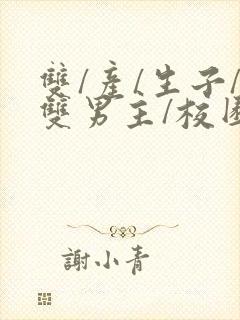 雙/產/生子/
雙男主/校園
謝小青